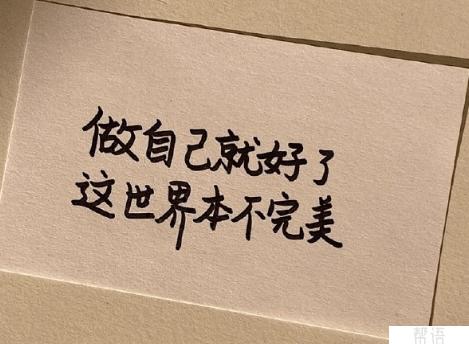 做自己就好了
这世界本不完美
帮语